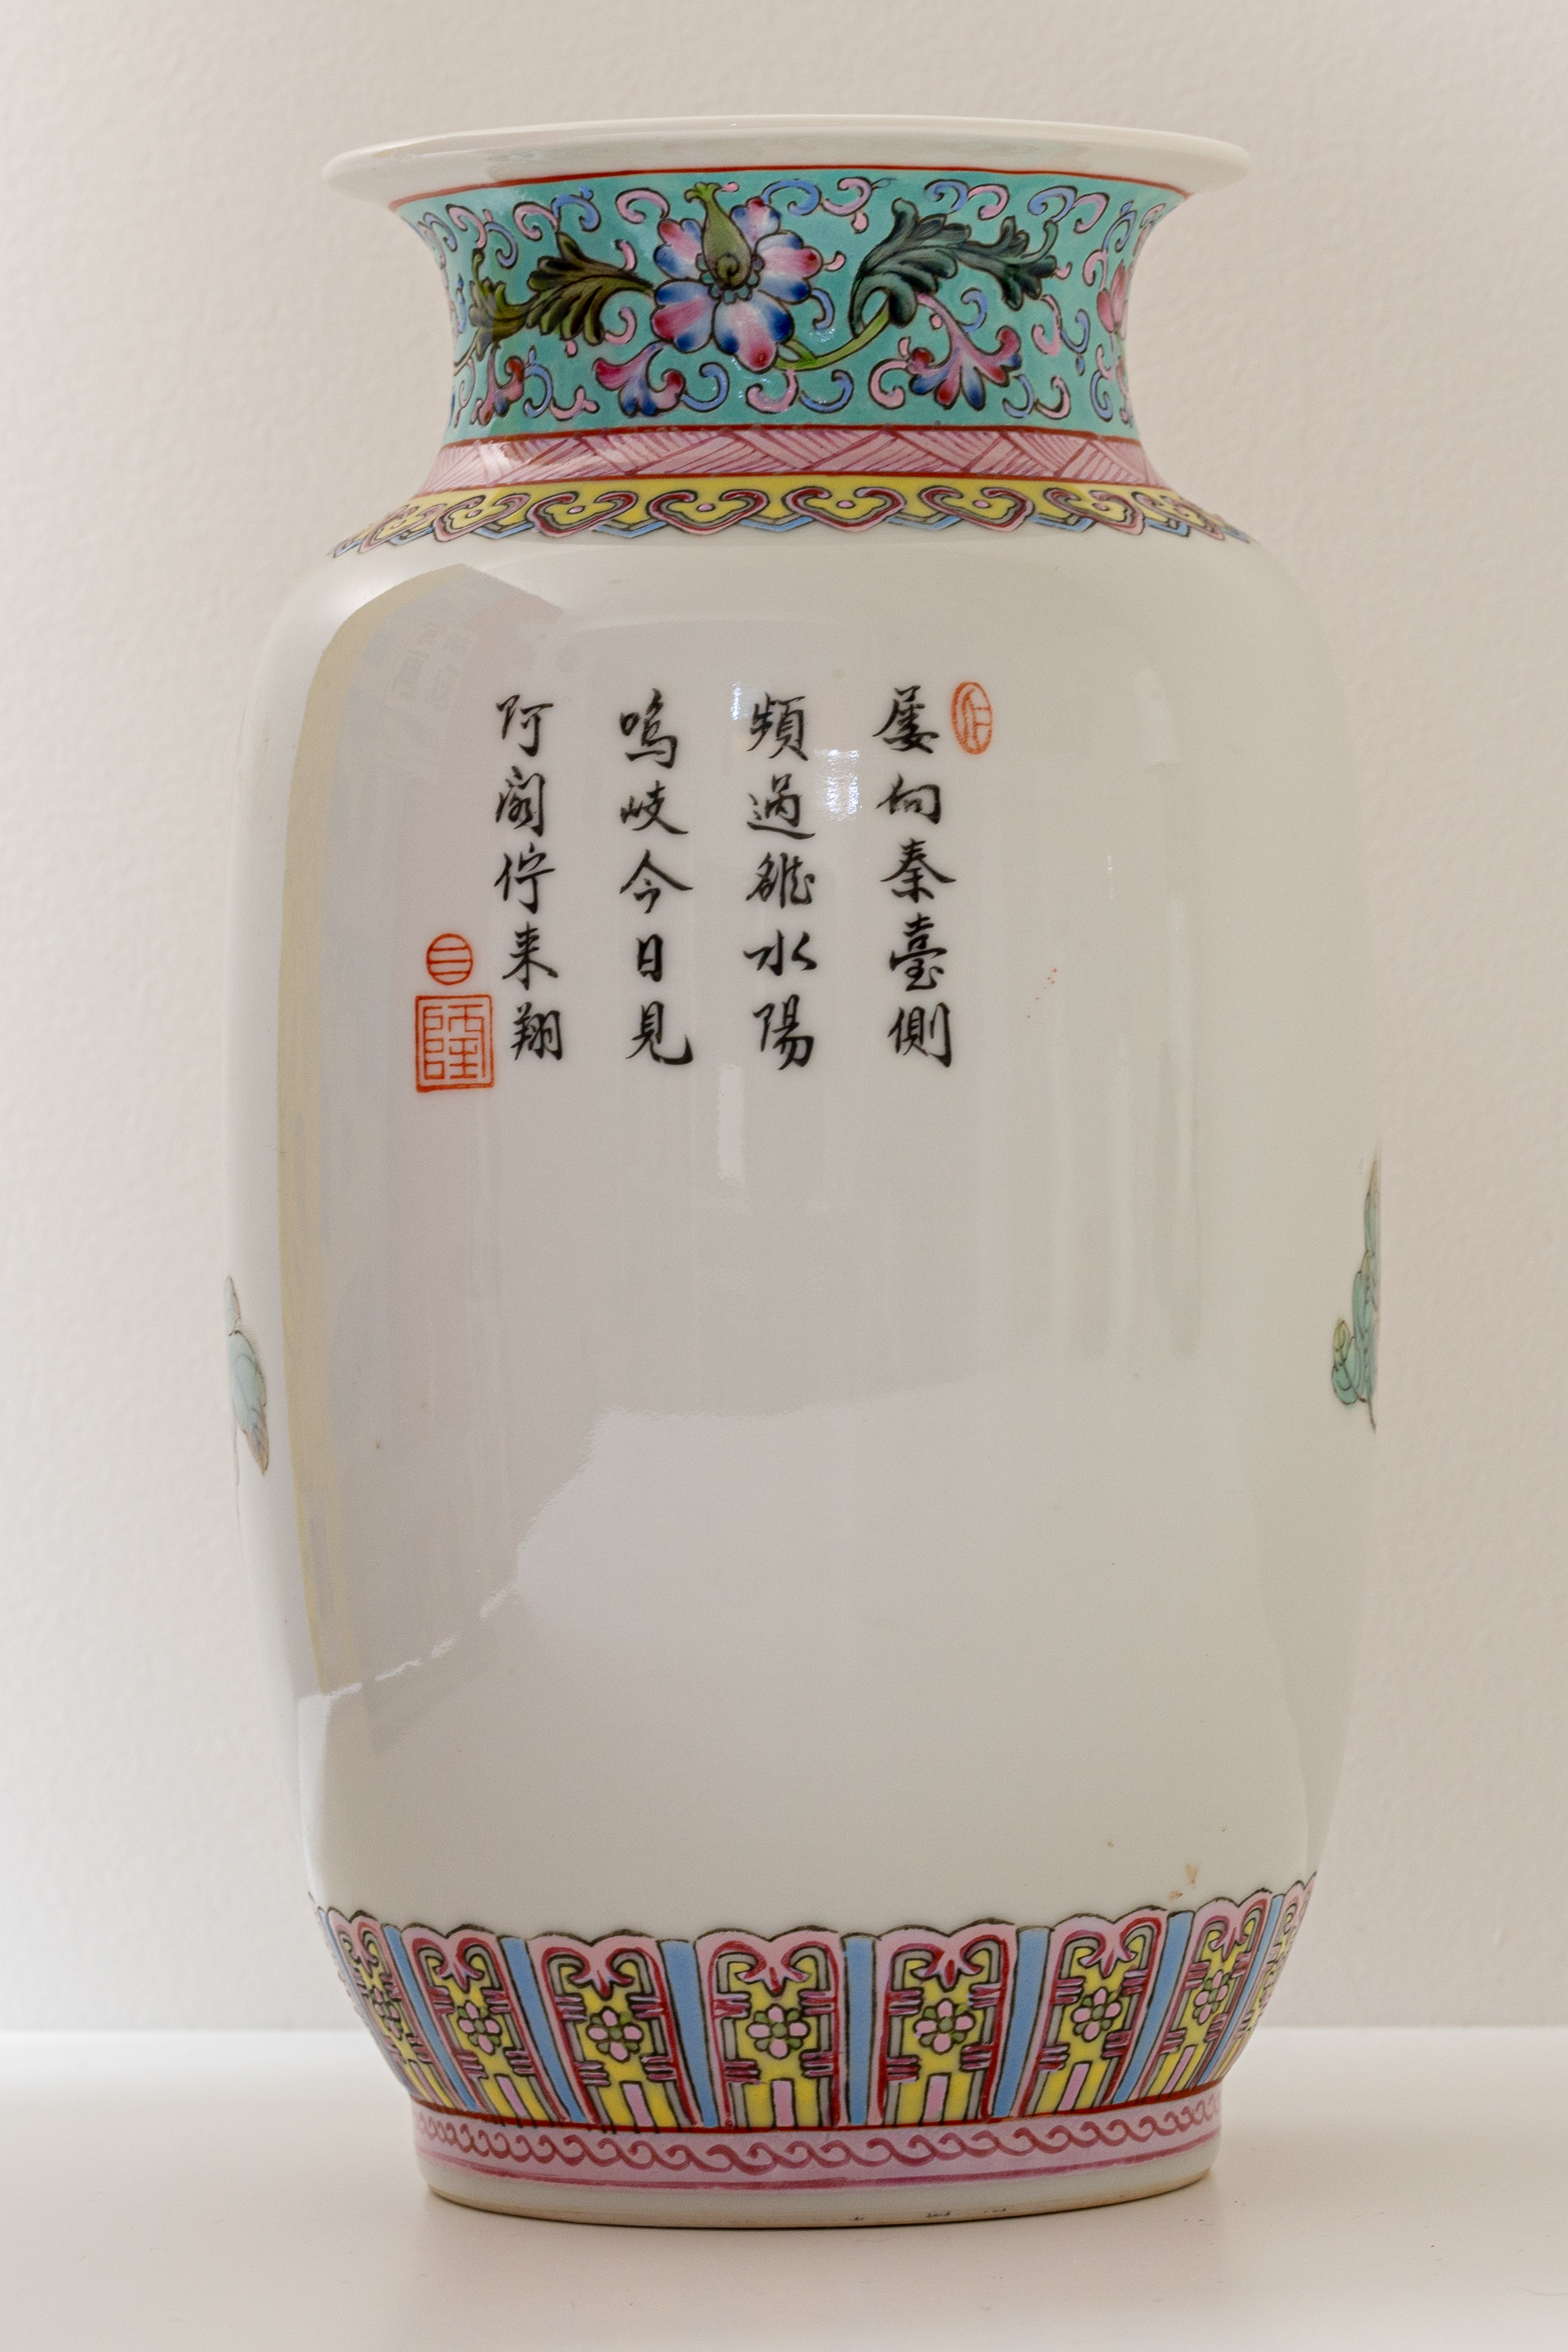 屡向秦臺側
頻過雒水陽
鳴岐今日見
阿閣佇来翔